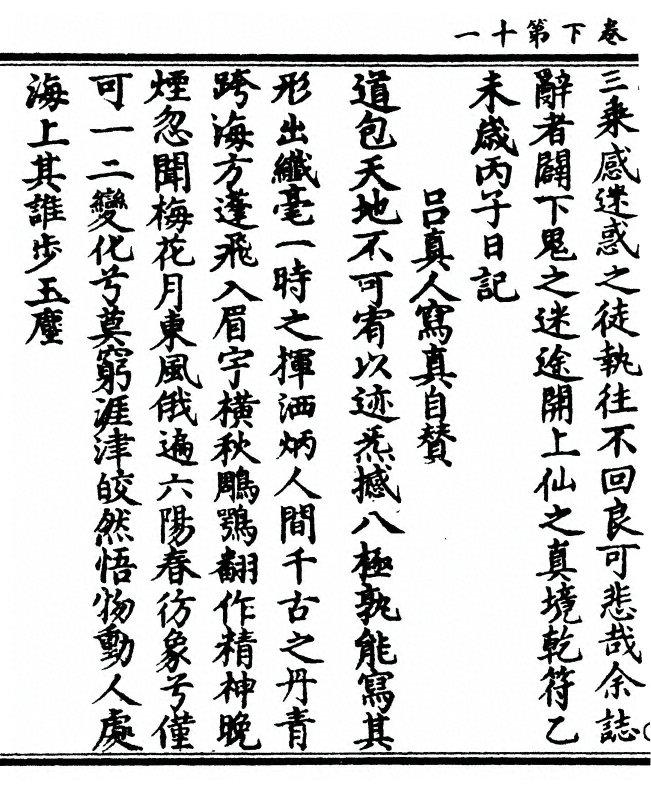 卷下第十一
三乘感迷惑之徒執往不回良可悲哉余誌
辭者闢下鬼之迷途開上仙之真境乾符乙
未歲丙子日記
呂真人寫真自贊
道包天地不可宥以迹炁撼八極孰能寫其
形出纖毫一時之揮洒炳人間千古之丹青
跨海方蓬飛入眉宇橫秋鵰鶚翻作精神晚
煙忽聞梅花月東風俄遍六陽春彷象兮僅
可一二變化兮莫窮涯津皎然悟物動人處
海上其誰步玉塵